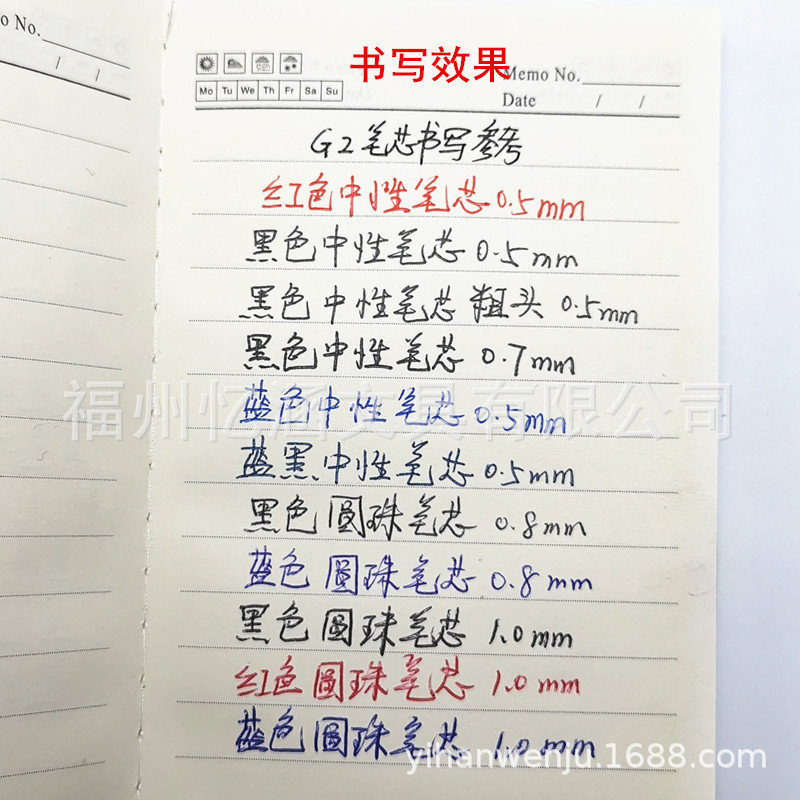 o No.
/ /
书写效果
Memo No.
Mo Tu We Th Fr Sa Su
Date / /
G2笔芯书写参考
红色中性笔芯0.5mm
黑色中性笔芯 0.5mm
黑色中性笔芯 粗头 0.5mm
黑色中性笔芯 0.7mm
福州忆涵文具有限公司
蓝色中性笔芯 0.5mm
蓝黑中性笔芯 0.5mm
黑色圆珠笔芯 0.8mm
蓝色圆珠笔芯 0.8mm
黑色圆珠笔芯 1.0mm
红色圆珠笔芯 1.0mm
蓝色圆珠笔芯 1.0mm
yihanwenju.1688.com